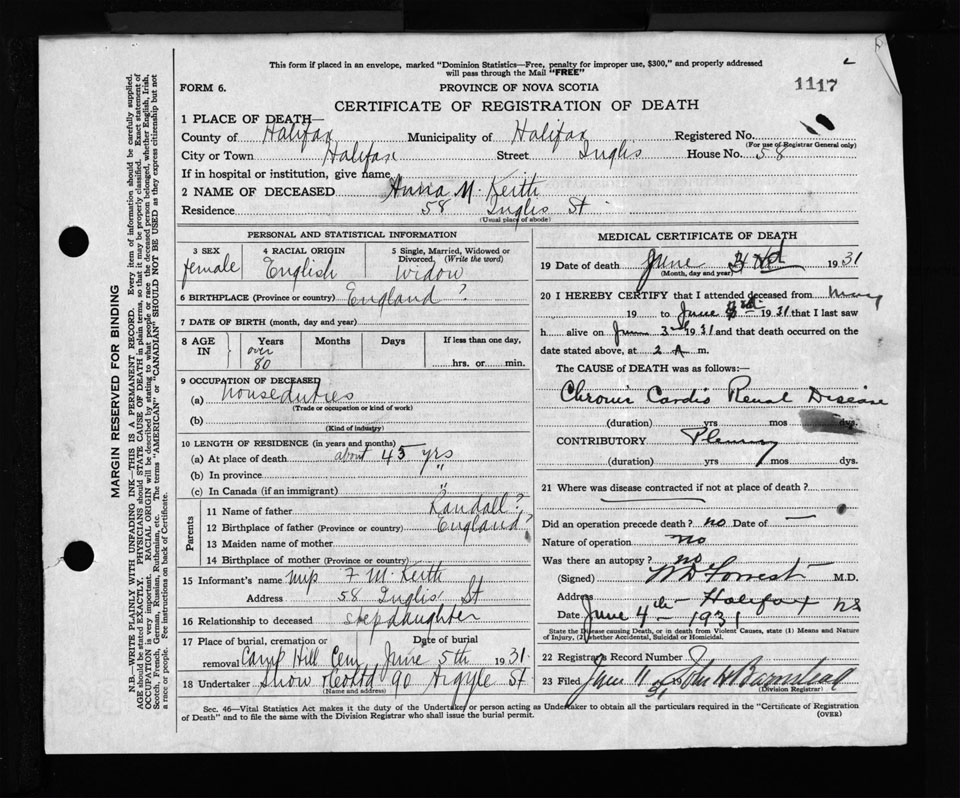 This form if placed in an envelope, marked "Dominion Statistics—Free, penalty for improper use, $300," and properly addressed
will pass through the Mail "FREE"
FORM 6.
PROVINCE OF NOVA SCOTIA
1117
CERTIFICATE OF REGISTRATION OF DEATH
1 PLACE OF DEATH—
County of Halifax Municipality of Halifax Registered No.
(For use of Registrar General only)
City or Town Halifax Street Inglis House No. 58
If in hospital or institution, give name
2 NAME OF DECEASED Anna M. Keith
Residence 58 Inglis St
(Usual place of abode)
PERSONAL AND STATISTICAL INFORMATION
3 SEX female 4 RACIAL ORIGIN English 5 Single, Married, Widowed or Divorced. (Write the word) Widow
6 BIRTHPLACE (Province or country) England ?
7 DATE OF BIRTH (month, day and year)
8 AGE IN Years Months Days If less than one day,
over 80 hrs. or min.
9 OCCUPATION OF DECEASED
(a) houseduties
(Trade or occupation or kind of work)
(b)
(Kind of industry)
10 LENGTH OF RESIDENCE (in years and months)
(a) At place of death about 45 yrs
(b) In province "
(c) In Canada (if an immigrant) "
Parents
11 Name of father Randall ?
12 Birthplace of father (Province or country) England ?
13 Maiden name of mother
14 Birthplace of mother (Province or country)
15 Informant's name F M. Keith
Address 58 Inglis St
16 Relationship to deceased stepdaughter
17 Place of burial, cremation or removal Camp Hill Cem Date of burial June 5th 1931
18 Undertaker Snow & Co Ltd 90 Argyle St
(Name and address)
MEDICAL CERTIFICATE OF DEATH
19 Date of death June 3rd 1931
(Month, day and year)
20 I HEREBY CERTIFY that I attended deceased from May
19 to June 3rd 1931 that I last saw
h alive on June 3rd 1931 and that death occurred on
date stated above, at 2 A m.
The CAUSE of DEATH was as follows:—
Chronic Cardio Renal Disease
(duration) yrs mos dys.
CONTRIBUTORY Pleurisy
(duration) yrs mos dys.
21 Where was disease contracted if not at place of death?
Did an operation precede death? no Date of —
Nature of operation no
Was there an autopsy? no
(Signed) W D Forrest M.D.
Address Halifax NS
Date June 4th – 1931
State the Disease causing Death, or in death from Violent Causes, state (1) Means and Nature
of Injury, (2) whether Accidental, Suicidal or Homicidal.
22 Registrar's Record Number
23 Filed June 11 31 John H Barnstead
(Division Registrar)
Sec. 46—Vital Statistics Act makes it the duty of the Undertaker or person acting as Undertaker to obtain all the particulars required in the "Certificate of Registration
of Death" and to file the same with the Division Registrar who shall issue the burial permit.
(OVER)
MARGIN RESERVED FOR BINDING
N.B.—WRITE PLAINLY WITH UNFADING INK—THIS IS A PERMANENT RECORD. Every item of information should be carefully supplied.
AGE should be stated EXACTLY. PHYSICIANS should STATE CAUSE OF DEATH in plain terms, so that it may be properly classified. Exact statement of
OCCUPATION is very important. RACIAL ORIGIN will be described by stating to what people or race the deceased person belonged, whether English, Irish,
Scotch, French, German, Russian, Ruthenian, etc. The terms "AMERICAN" or "CANADIAN" SHOULD NOT BE USED as they express citizenship but not
a race or people. See instructions on back of Certificate.